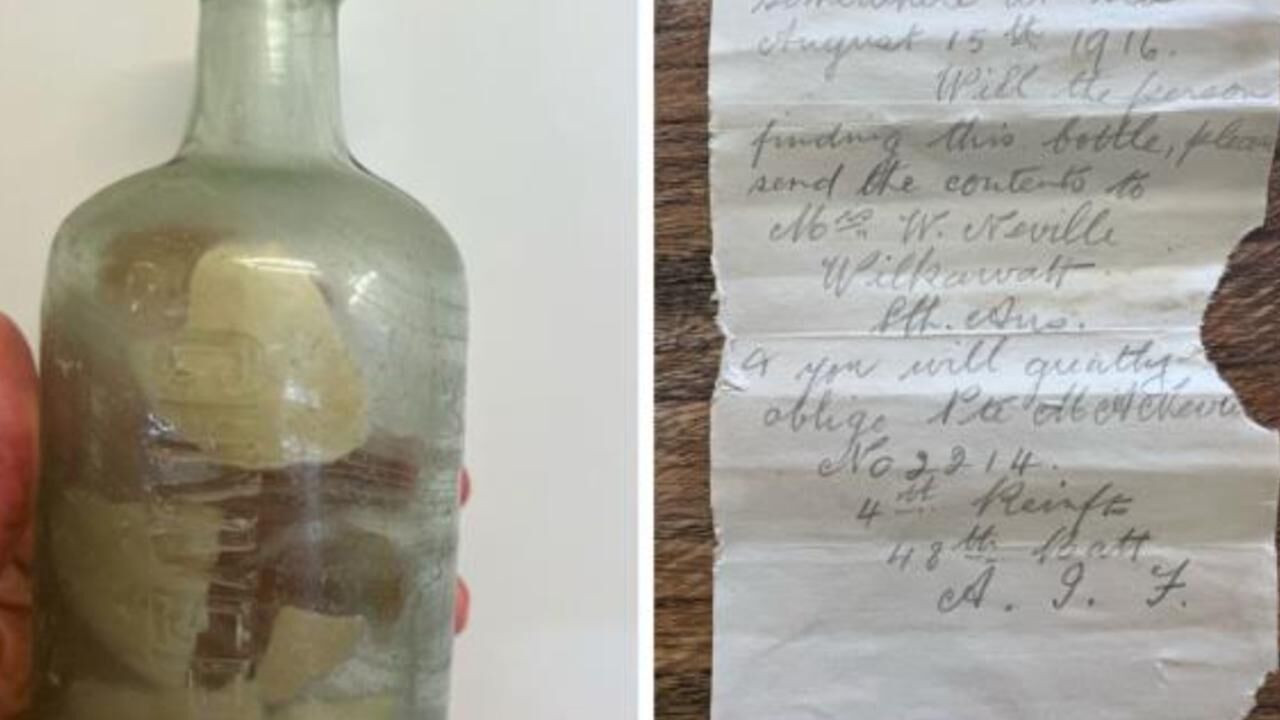 somewhere at sea
August 15th 1916.
Will the person
finding this bottle, please
send the contents to
Mrs. W. Neville
Wilkawatt
Sth. Aus.
& you will greatly
oblige Pte
No 2214.
4th Reinfts
48th Batt
A. I. F.